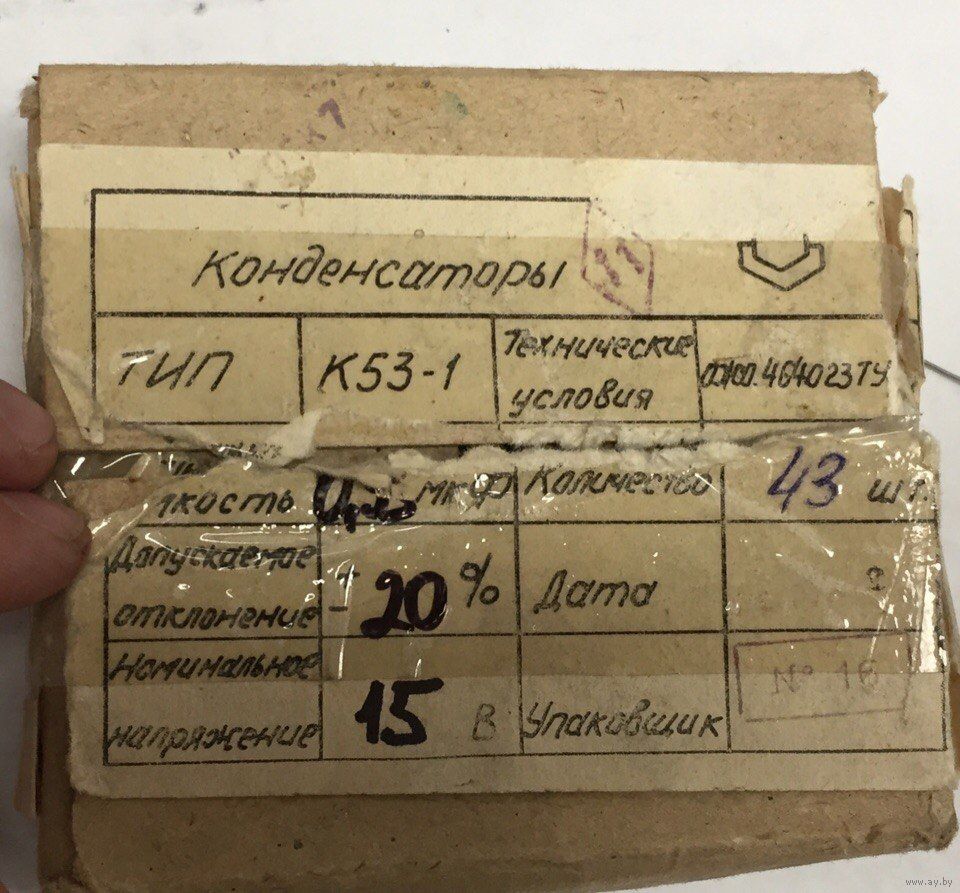 Конденсаторы
11
ТИП К53-1 Технические условия ТУ
мкф Количество 43 шт.
Допускаемое отклонение ± 20 % Дата г
Номинальное напряжение 15 В Упаковщик № 16
www.ay.by